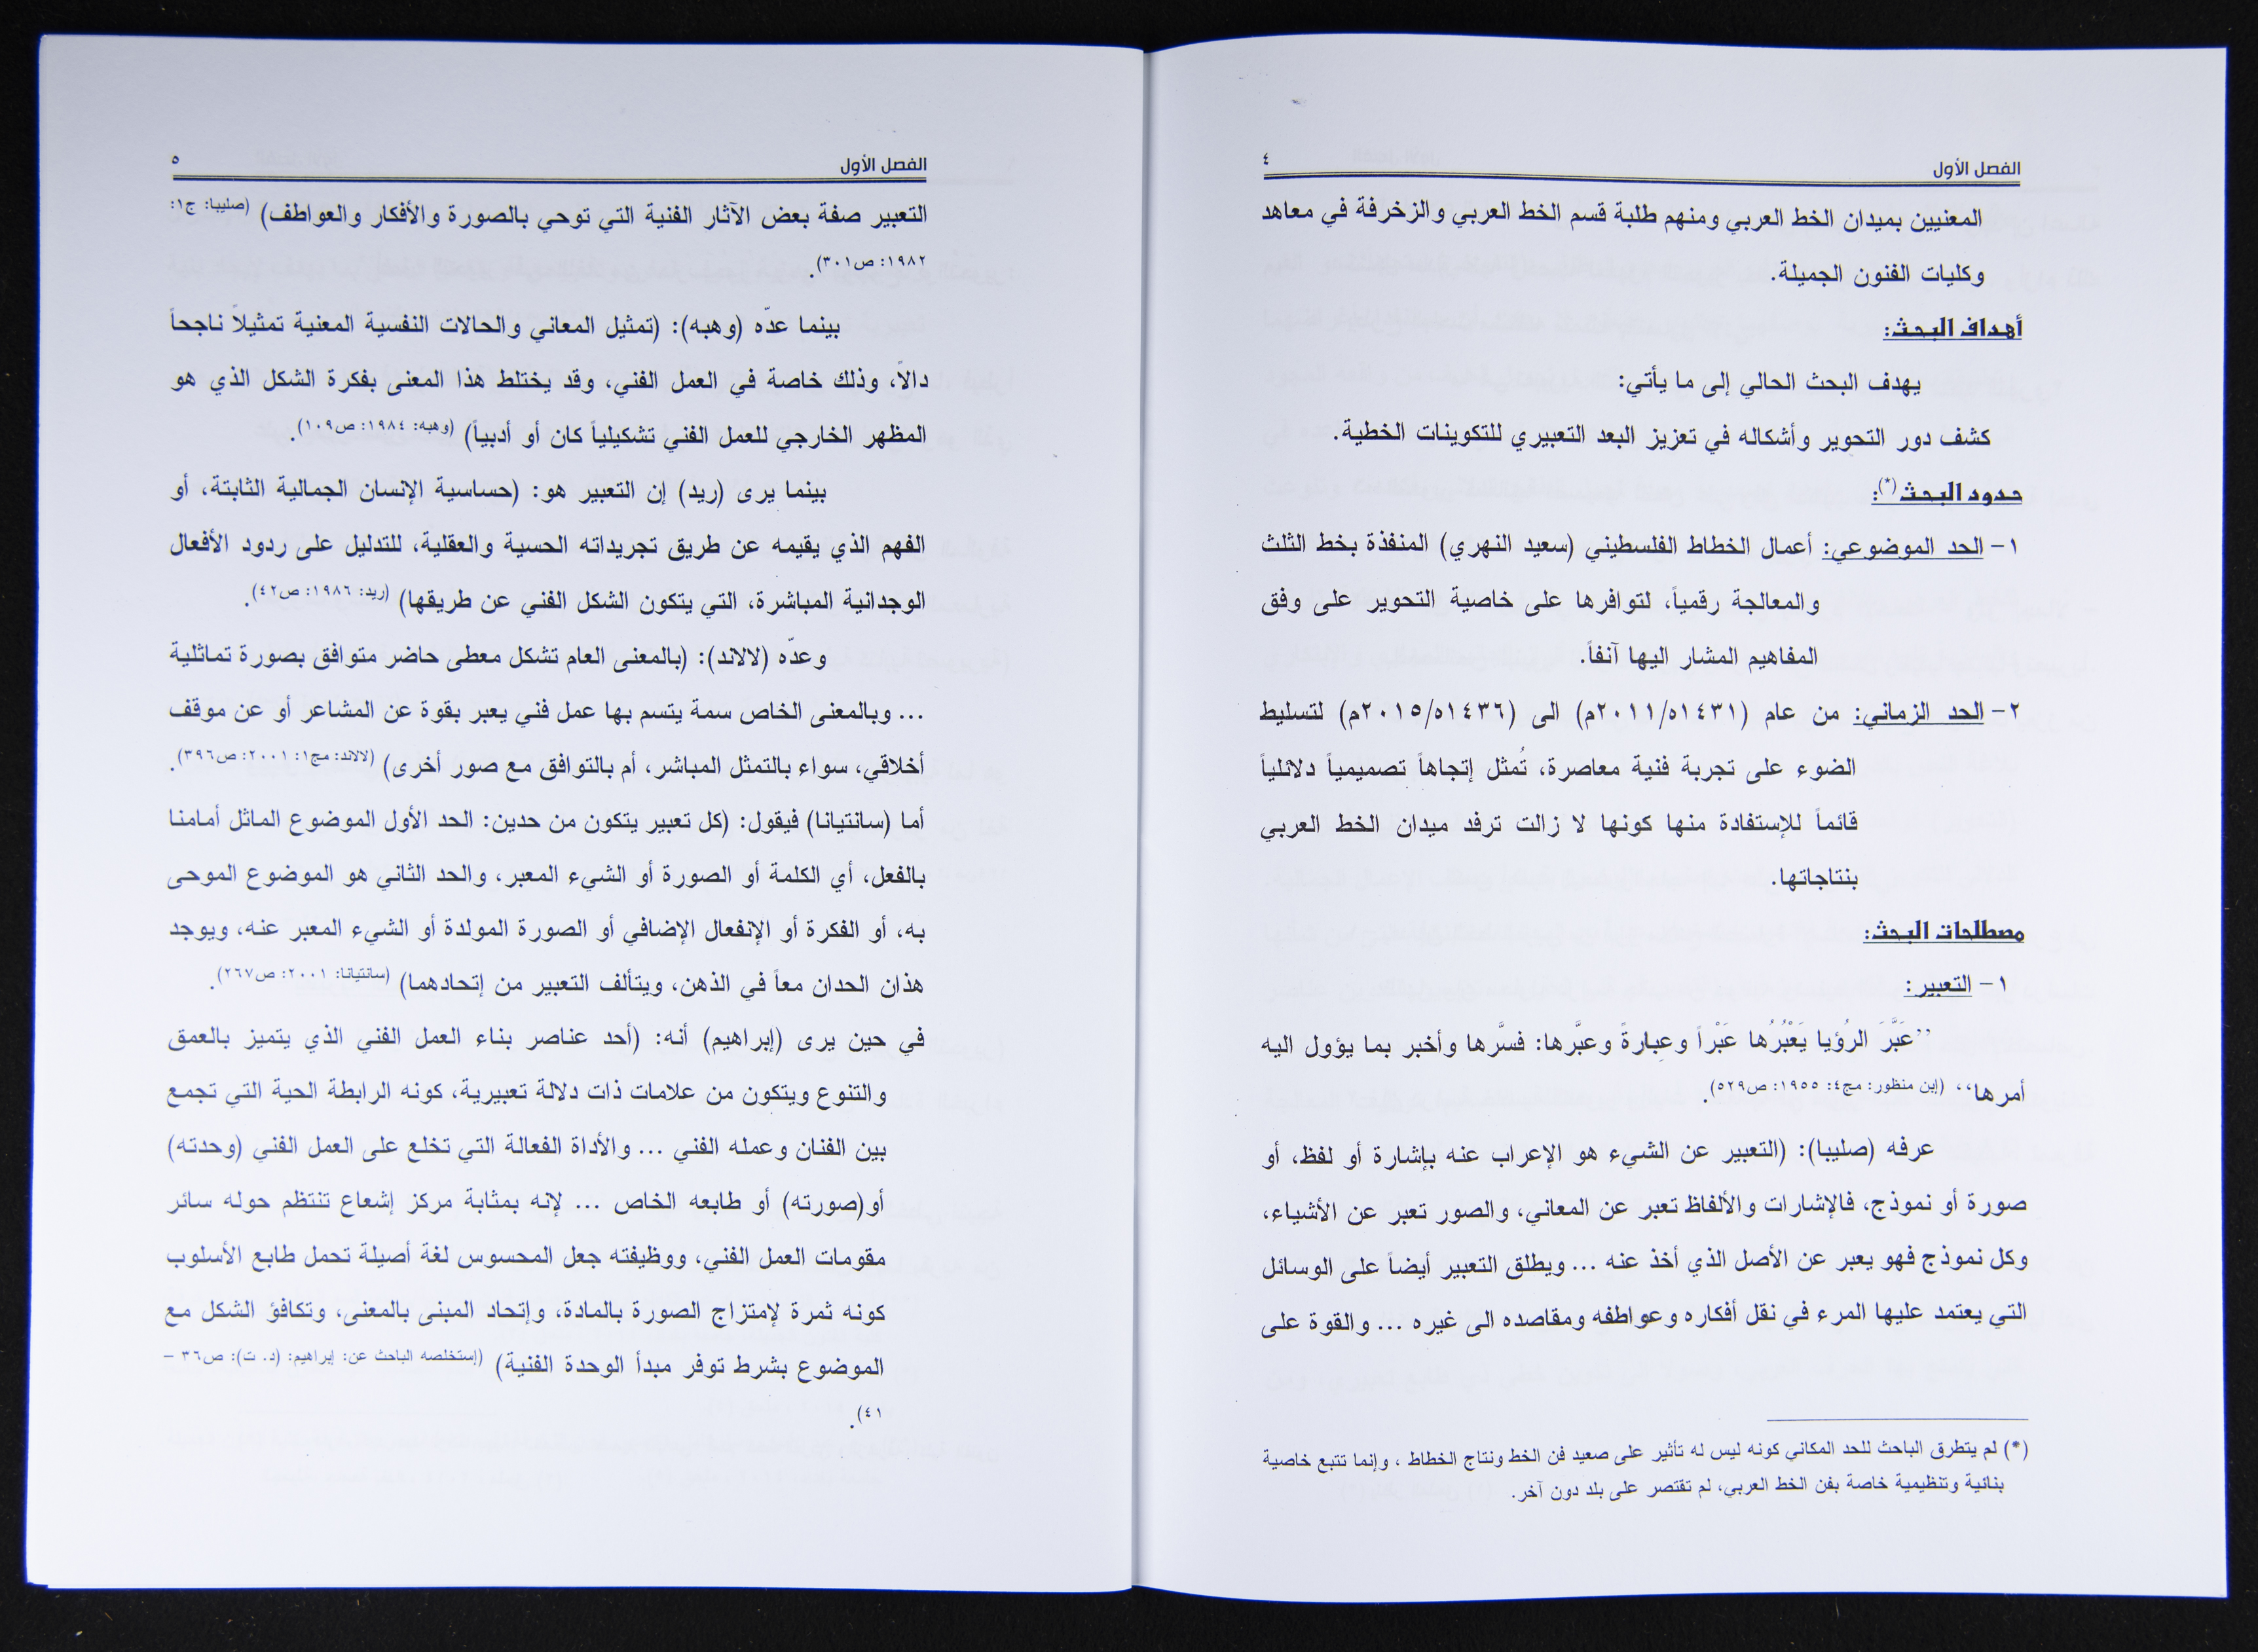 الفصل الأول ٤
المعنيين بميدان الخط العربي ومنهم طلبة قسم الخط العربي والزخرفة في معاهد
وكليات الفنون الجميلة.
أهداف البحث:
يهدف البحث الحالي إلى ما يأتي:
كشف دور التحوير وأشكاله في تعزيز البعد التعبيري للتكوينات الخطية.
حدود البحث(*):
١- الحد الموضوعي: أعمال الخطاط الفلسطيني (سعيد النهري) المنفذة بخط الثلث
والمعالجة رقمياً، لتوافرها على خاصية التحوير على وفق
المفاهيم المشار اليها آنفاً.
٢- الحد الزماني: من عام (١٤٣١ه/٢٠١١م) الى (١٤٣٦ه/٢٠١٥م) لتسليط
الضوء على تجربة فنية معاصرة، تُمثل إتجاهاً تصميمياً دلائلياً
قائماً للإستفادة منها كونها لا زالت ترفد ميدان الخط العربي
بنتاجاتها.
مصطلحات البحث:
١- التعبير:
’’عَبَّرَ الرُؤيا يَعْبُرُها عَبْراً وعِبارةً وعبَّرها: فسَّرها وأخبر بما يؤول اليه
أمرها‘‘ (إبن منظور: مج٤: ١٩٥٥: ص٥٢٩).
عرفه (صليبا): (التعبير عن الشيء هو الإعراب عنه بإشارة أو لفظ، أو
صورة أو نموذج، فالإشارات والألفاظ تعبر عن المعاني، والصور تعبر عن الأشياء،
وكل نموذج فهو يعبر عن الأصل الذي أخذ عنه ... ويطلق التعبير أيضاً على الوسائل
التي يعتمد عليها المرء في نقل أفكاره وعواطفه ومقاصده الى غيره ... والقوة على
(*) لم يتطرق الباحث للحد المكاني كونه ليس له تأثير على صعيد فن الخط ونتاج الخطاط ، وإنما تتبع خاصية
بنائية وتنظيمية خاصة بفن الخط العربي، لم تقتصر على بلد دون آخر.
الفصل الأول ٥
التعبير صفة بعض الآثار الفنية التي توحي بالصورة والأفكار والعواطف) (صليبا: ج١:
١٩٨٢: ص٣٠١).
بينما عدّه (وهبه): (تمثيل المعاني والحالات النفسية المعنية تمثيلاً ناجحاً
دالاً، وذلك خاصة في العمل الفني، وقد يختلط هذا المعنى بفكرة الشكل الذي هو
المظهر الخارجي للعمل الفني تشكيلياً كان أو أدبياً) (وهبه: ١٩٨٤: ص١٠٩).
بينما يرى (ريد) إن التعبير هو: (حساسية الإنسان الجمالية الثابتة، أو
الفهم الذي يقيمه عن طريق تجريداته الحسية والعقلية، للتدليل على ردود الأفعال
الوجدانية المباشرة، التي يتكون الشكل الفني عن طريقها) (ريد: ١٩٨٦: ص٤٢).
وعدّه (لالاند): (بالمعنى العام تشكل معطى حاضر متوافق بصورة تماثلية
... وبالمعنى الخاص سمة يتسم بها عمل فني يعبر بقوة عن المشاعر أو عن موقف
أخلاقي، سواء بالتمثل المباشر، أم بالتوافق مع صور أخرى) (لالاند: مج١: ٢٠٠١: ص٣٩٦).
أما (سانتيانا) فيقول: (كل تعبير يتكون من حدين: الحد الأول الموضوع الماثل أمامنا
بالفعل، أي الكلمة أو الصورة أو الشيء المعبر، والحد الثاني هو الموضوع الموحى
به، أو الفكرة أو الإنفعال الإضافي أو الصورة المولدة أو الشيء المعبر عنه، ويوجد
هذان الحدان معاً في الذهن، ويتألف التعبير من إتحادهما) (سانتيانا: ٢٠٠١: ص٢٦٧).
في حين يرى (إبراهيم) أنه: (أحد عناصر بناء العمل الفني الذي يتميز بالعمق
والتنوع ويتكون من علامات ذات دلالة تعبيرية، كونه الرابطة الحية التي تجمع
بين الفنان وعمله الفني ... والأداة الفعالة التي تخلع على العمل الفني (وحدته)
أو(صورته) أو طابعه الخاص ... لإنه بمثابة مركز إشعاع تنتظم حوله سائر
مقومات العمل الفني، ووظيفته جعل المحسوس لغة أصيلة تحمل طابع الأسلوب
كونه ثمرة لإمتزاج الصورة بالمادة، وإتحاد المبنى بالمعنى، وتكافؤ الشكل مع
الموضوع بشرط توفر مبدأ الوحدة الفنية) (إستخلصه الباحث عن: إبراهيم: (د. ت): ص٣٦ –
٤١).